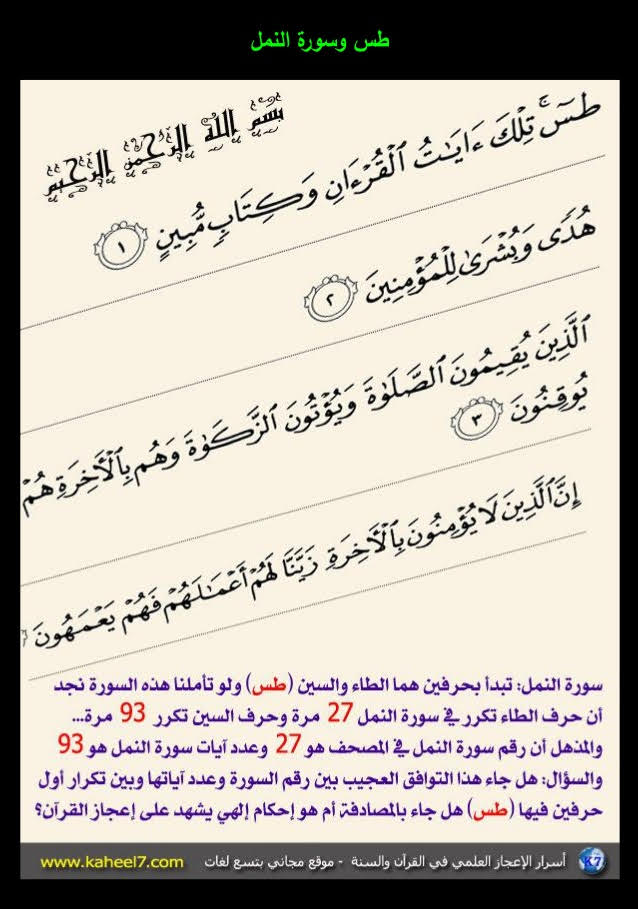 طس وسورة النمل
بِسْمِ اللَّهِ الرَّحْمَٰنِ الرَّحِيمِ
طسٓ ۚ تِلْكَ ءَايَٰتُ ٱلْقُرْءَانِ وَكِتَابٍ مُّبِينٍ ١
هُدًى وَبُشْرَىٰ لِلْمُؤْمِنِينَ ٢
ٱلَّذِينَ يُقِيمُونَ ٱلصَّلَوٰةَ وَيُؤْتُونَ ٱلزَّكَوٰةَ وَهُم بِٱلْأَخِرَةِ هُمْ
يُوقِنُونَ ٣
إِنَّ ٱلَّذِينَ لَا يُؤْمِنُونَ بِٱلْأَخِرَةِ زَيَّنَّا لَهُمْ أَعْمَٰلَهُمْ فَهُمْ يَعْمَهُونَ
سورة النمل: تبدأ بحرفين هما الطاء والسين (طس) ولو تأملنا هذه السورة نجد
أن حرف الطاء تكرر في سورة النمل 27 مرة وحرف السين تكرر 93 مرة...
والمذهل أن رقم سورة النمل في المصحف هو 27 وعدد آيات سورة النمل هو 93
والسؤال: هل جاء هذا التوافق العجيب بين رقم السورة وعدد آياتها وبين تكرار أول
حرفين فيها (طس) هل جاء بالمصادفة أم هو إحكام إلهي يشهد على إعجاز القرآن؟
K7 أسرار الإعجاز العلمي في القرآن والسنة - موقع مجاني بتسع لغات www.kaheel7.com